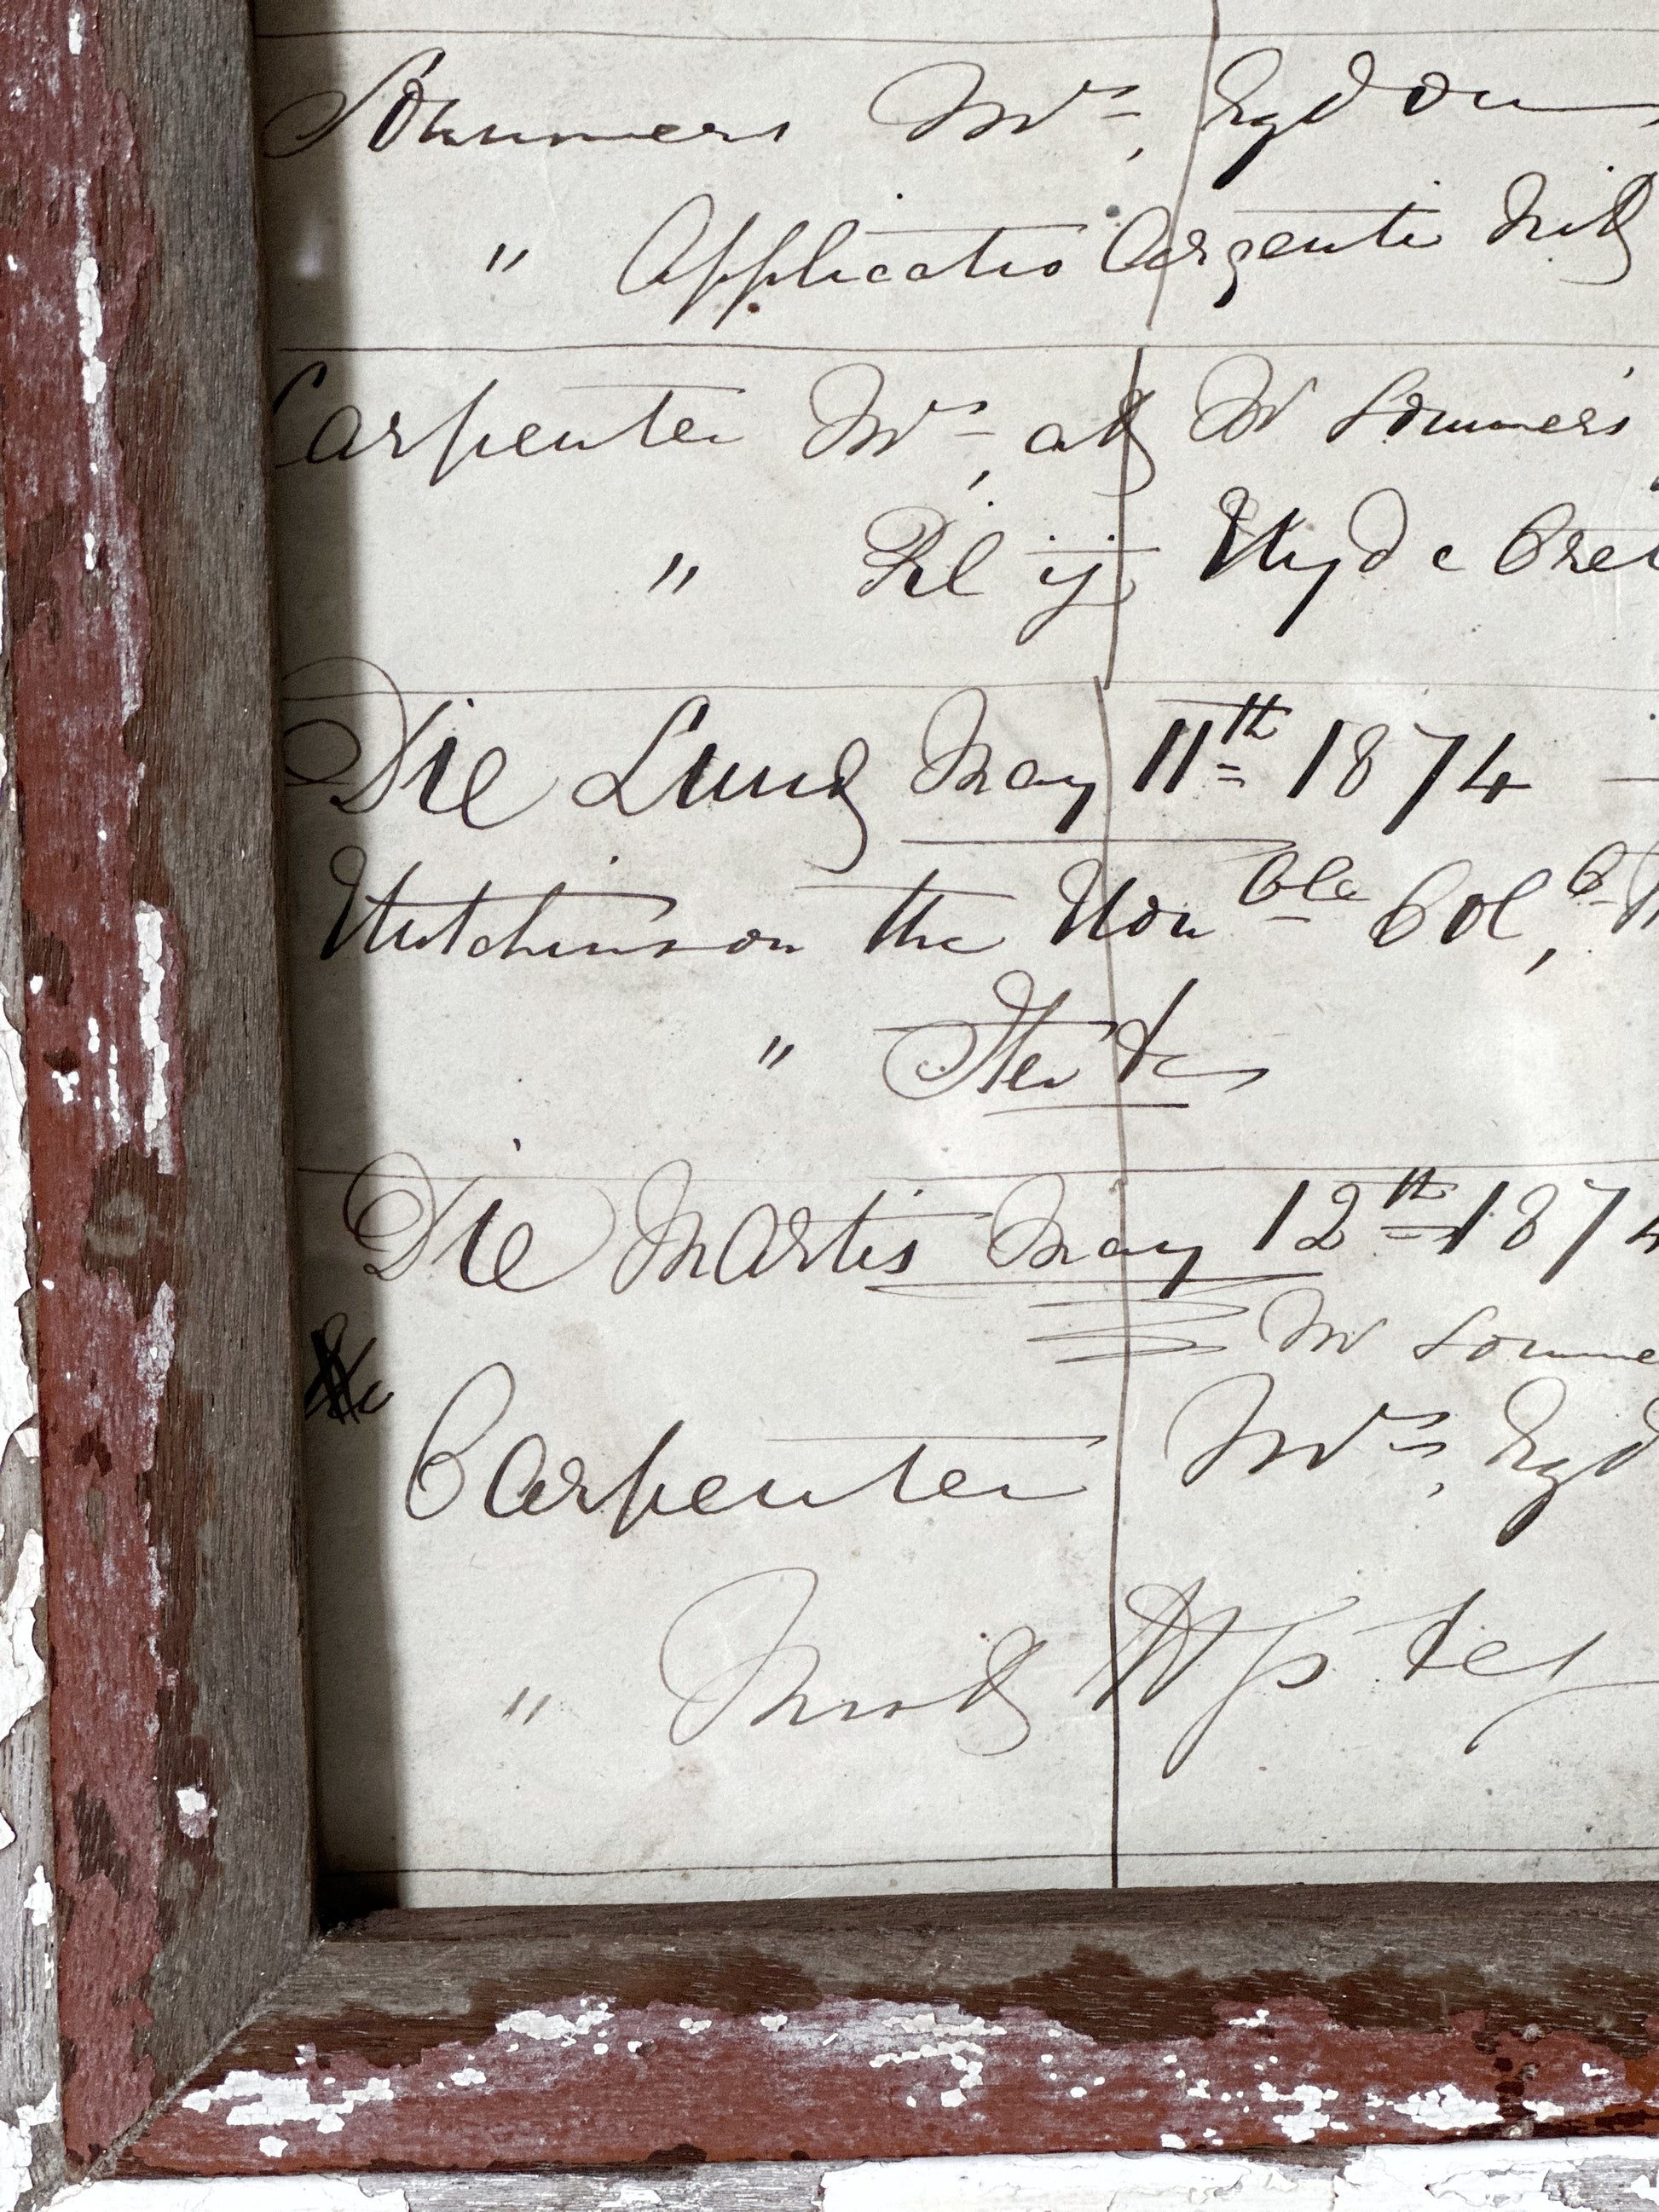 Sommers Mrs, Egdon
" Applicatio Argenti Nit
Carpenter Mrs, at Mr Sommers
" Pil ij Hyde
Die Lunæ May 11th 1874
Hutchinson the Honble Col,
" Iter &c
Die Martis May 12th 1874
Mr Somme
Carpenter Mrs, Egd
" Mist